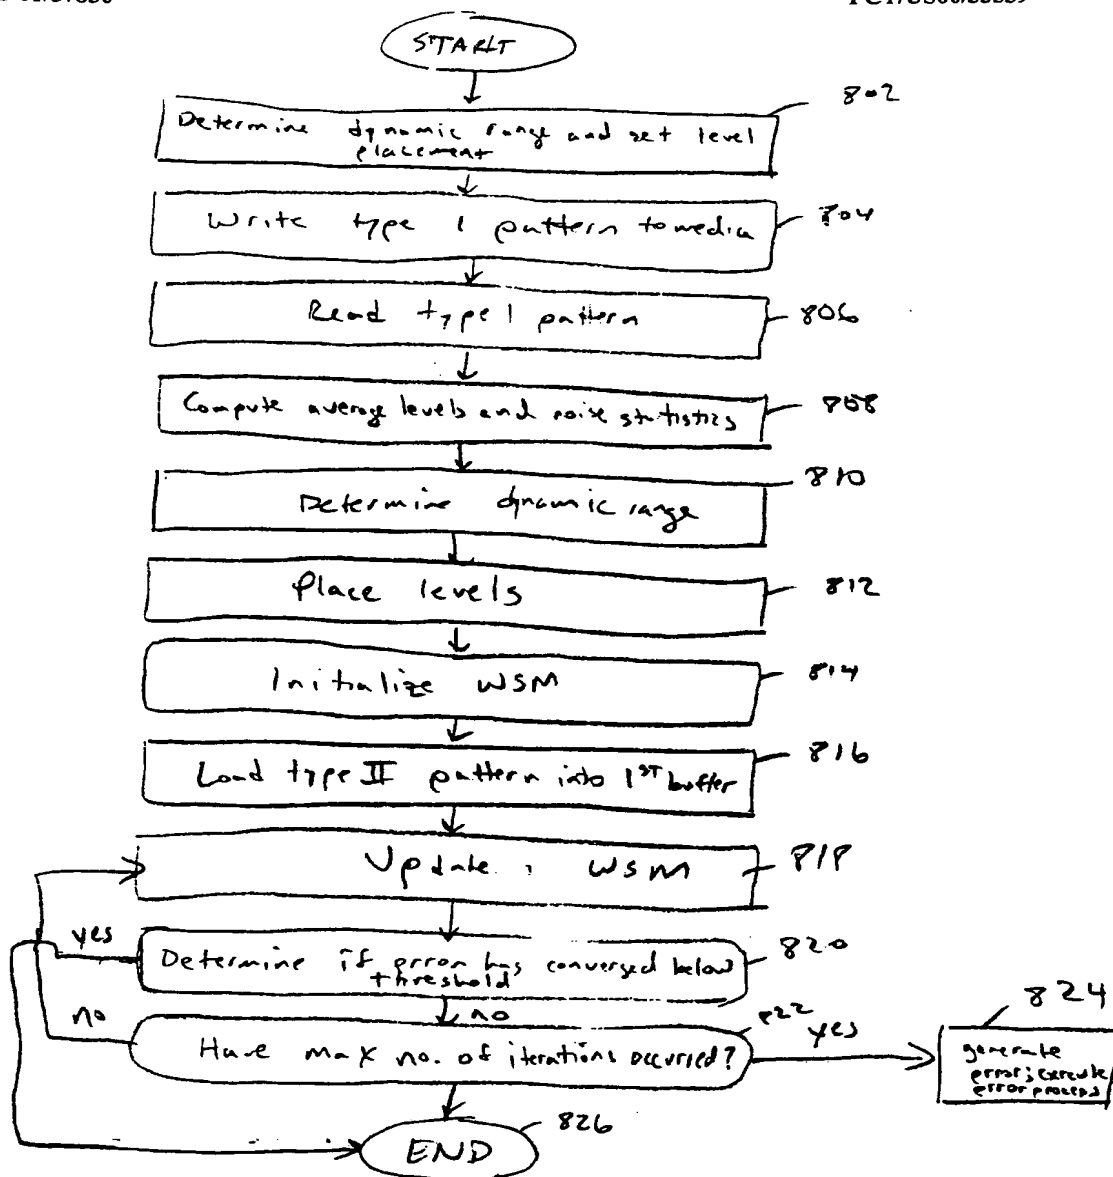 START
802
Determine dynamic range and set level
placement
Write type 1 pattern to media
804
Read type 1 pattern
806
Compute average levels and noise statistics
808
Determine dynamic range
810
Place levels
812
Initialize WSM
814
Load type II pattern into 1ST buffer
816
Update WSM
818
yes
Determine if error has converged below
threshold
820
no
no
Have max no. of iterations occurred?
822
yes
824
generate
error; execute
error process
END
826